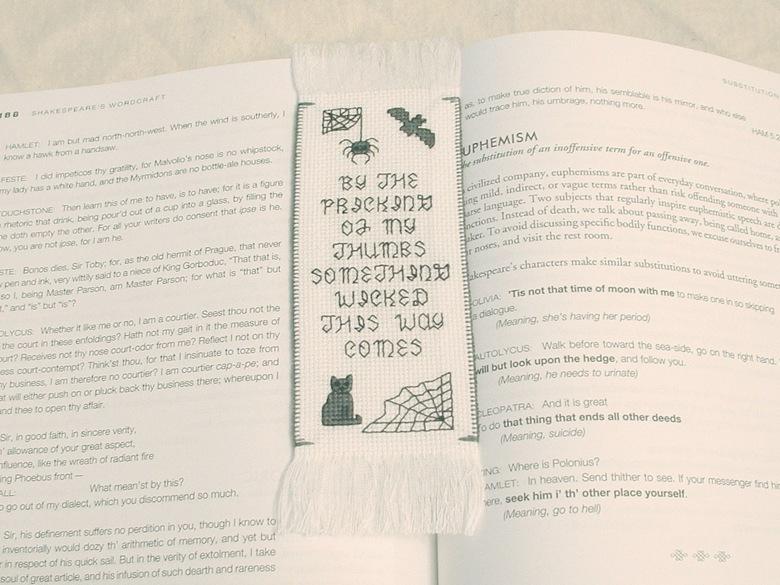 188 SHAKESPEARE'S WORDCRAFT
HAMLET: I am but mad north-north-west. When the wind is southerly, I
know a hawk from a handsaw.
FESTE: I did impeticos thy gratility, for Malvolio's nose is no whipstock,
my lady has a white hand, and the Myrmidons are no bottle-ale houses.
TOUCHSTONE: Then learn this of me to have, is to have; for it is a figure
rhetoric that drink, being pour'd out of a cup into a glass, by filling the
doth empty the other. For all your writers do consent that ipse is he.
ow, you are not ipse, for I am he.
STE: Bonos dies, Sir Toby; for, as the old hermit of Prague, that never
pen and ink, very wittily said to a niece of King Gorboduc, "That that is,
so I, being Master Parson, am Master Parson; for what is "that" but
," and "is" but "is"?
OLYCUS: Whether it like me or no, I am a courtier. Seest thou not the
the court in these enfoldings? Hath not my gait in it the measure of
ourt? Receives not thy nose court-odor from me? Reflect I not on thy
ess court-contempt? Think'st thou, for that I insinuate to toze from
hy business, I am therefore no courtier? I am courtier cap-a-pe; and
at will either push on or pluck back thy business there; whereupon I
and thee to open thy affair.
Sir, in good faith, in sincere verity,
' allowance of your great aspect,
nfluence, like the wreath of radiant fire
ing Phoebus front—
ALL: What mean'st by this?
o go out of my dialect, which you discommend so much.
Sir, his definement suffers no perdition in you, though I know to
inventorially would dozy th' arithmetic of memory, and yet but
r in respect of his quick sail. But in the verity of extolment, I take
soul of great article, and his infusion of such dearth and rareness
BY THE
PRICKING
OF MY
THUMBS
SOMETHING
WICKED
THIS WAY
COMES
SUBSTITUTION
as, to make true diction of him, his semblable is his mirror, and who else
would trace him, his umbrage, nothing more.
HAM
UPHEMISM
he substitution of an inoffensive term for an offensive one.
civilized company, euphemisms are part of everyday conversation, where
ing mild, indirect, or vague terms rather than risk offending someone with
arse language. Two subjects that regularly inspire euphemistic speech are
nctions. Instead of death, we talk about passing away, being called home,
aker. To avoid discussing specific bodily functions, we excuse ourselves to
r noses, and visit the rest room.
akespeare's characters make similar substitutions to avoid uttering some
OLIVIA: 'Tis not that time of moon with me to make one in so skipping
a dialogue.
(Meaning, she's having her period)
AUTOLYCUS: Walk before toward the sea-side, go on the right hand,
will but look upon the hedge, and follow you.
(Meaning, he needs to urinate)
CLEOPATRA: And it is great
To do that thing that ends all other deeds
(Meaning, suicide)
KING: Where is Polonius?
HAMLET: In heaven. Send thither to see. If your messenger find him
here, seek him i' th' other place yourself.
(Meaning, go to hell)